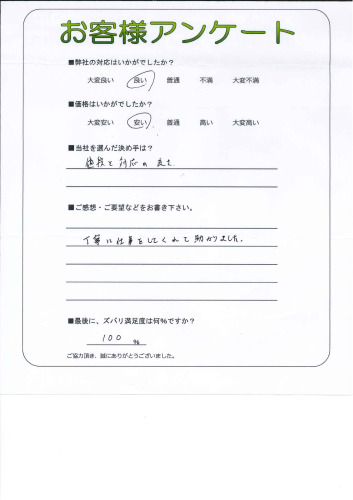 お客様アンケート
■弊社の対応はいかがでしたか?
大変良い 良い 普通 不満 大変不満
■価格はいかがでしたか?
大変安い 安い 普通 高い 大変高い
■当社を選んだ決め手は?
値段と対応の良さ
■ご感想・ご要望などをお書き下さい。
丁寧に仕事をしてくれて助かりました。
■最後に、ズバリ満足度は何%ですか?
100 %
ご協力頂き、誠にありがとうございました。